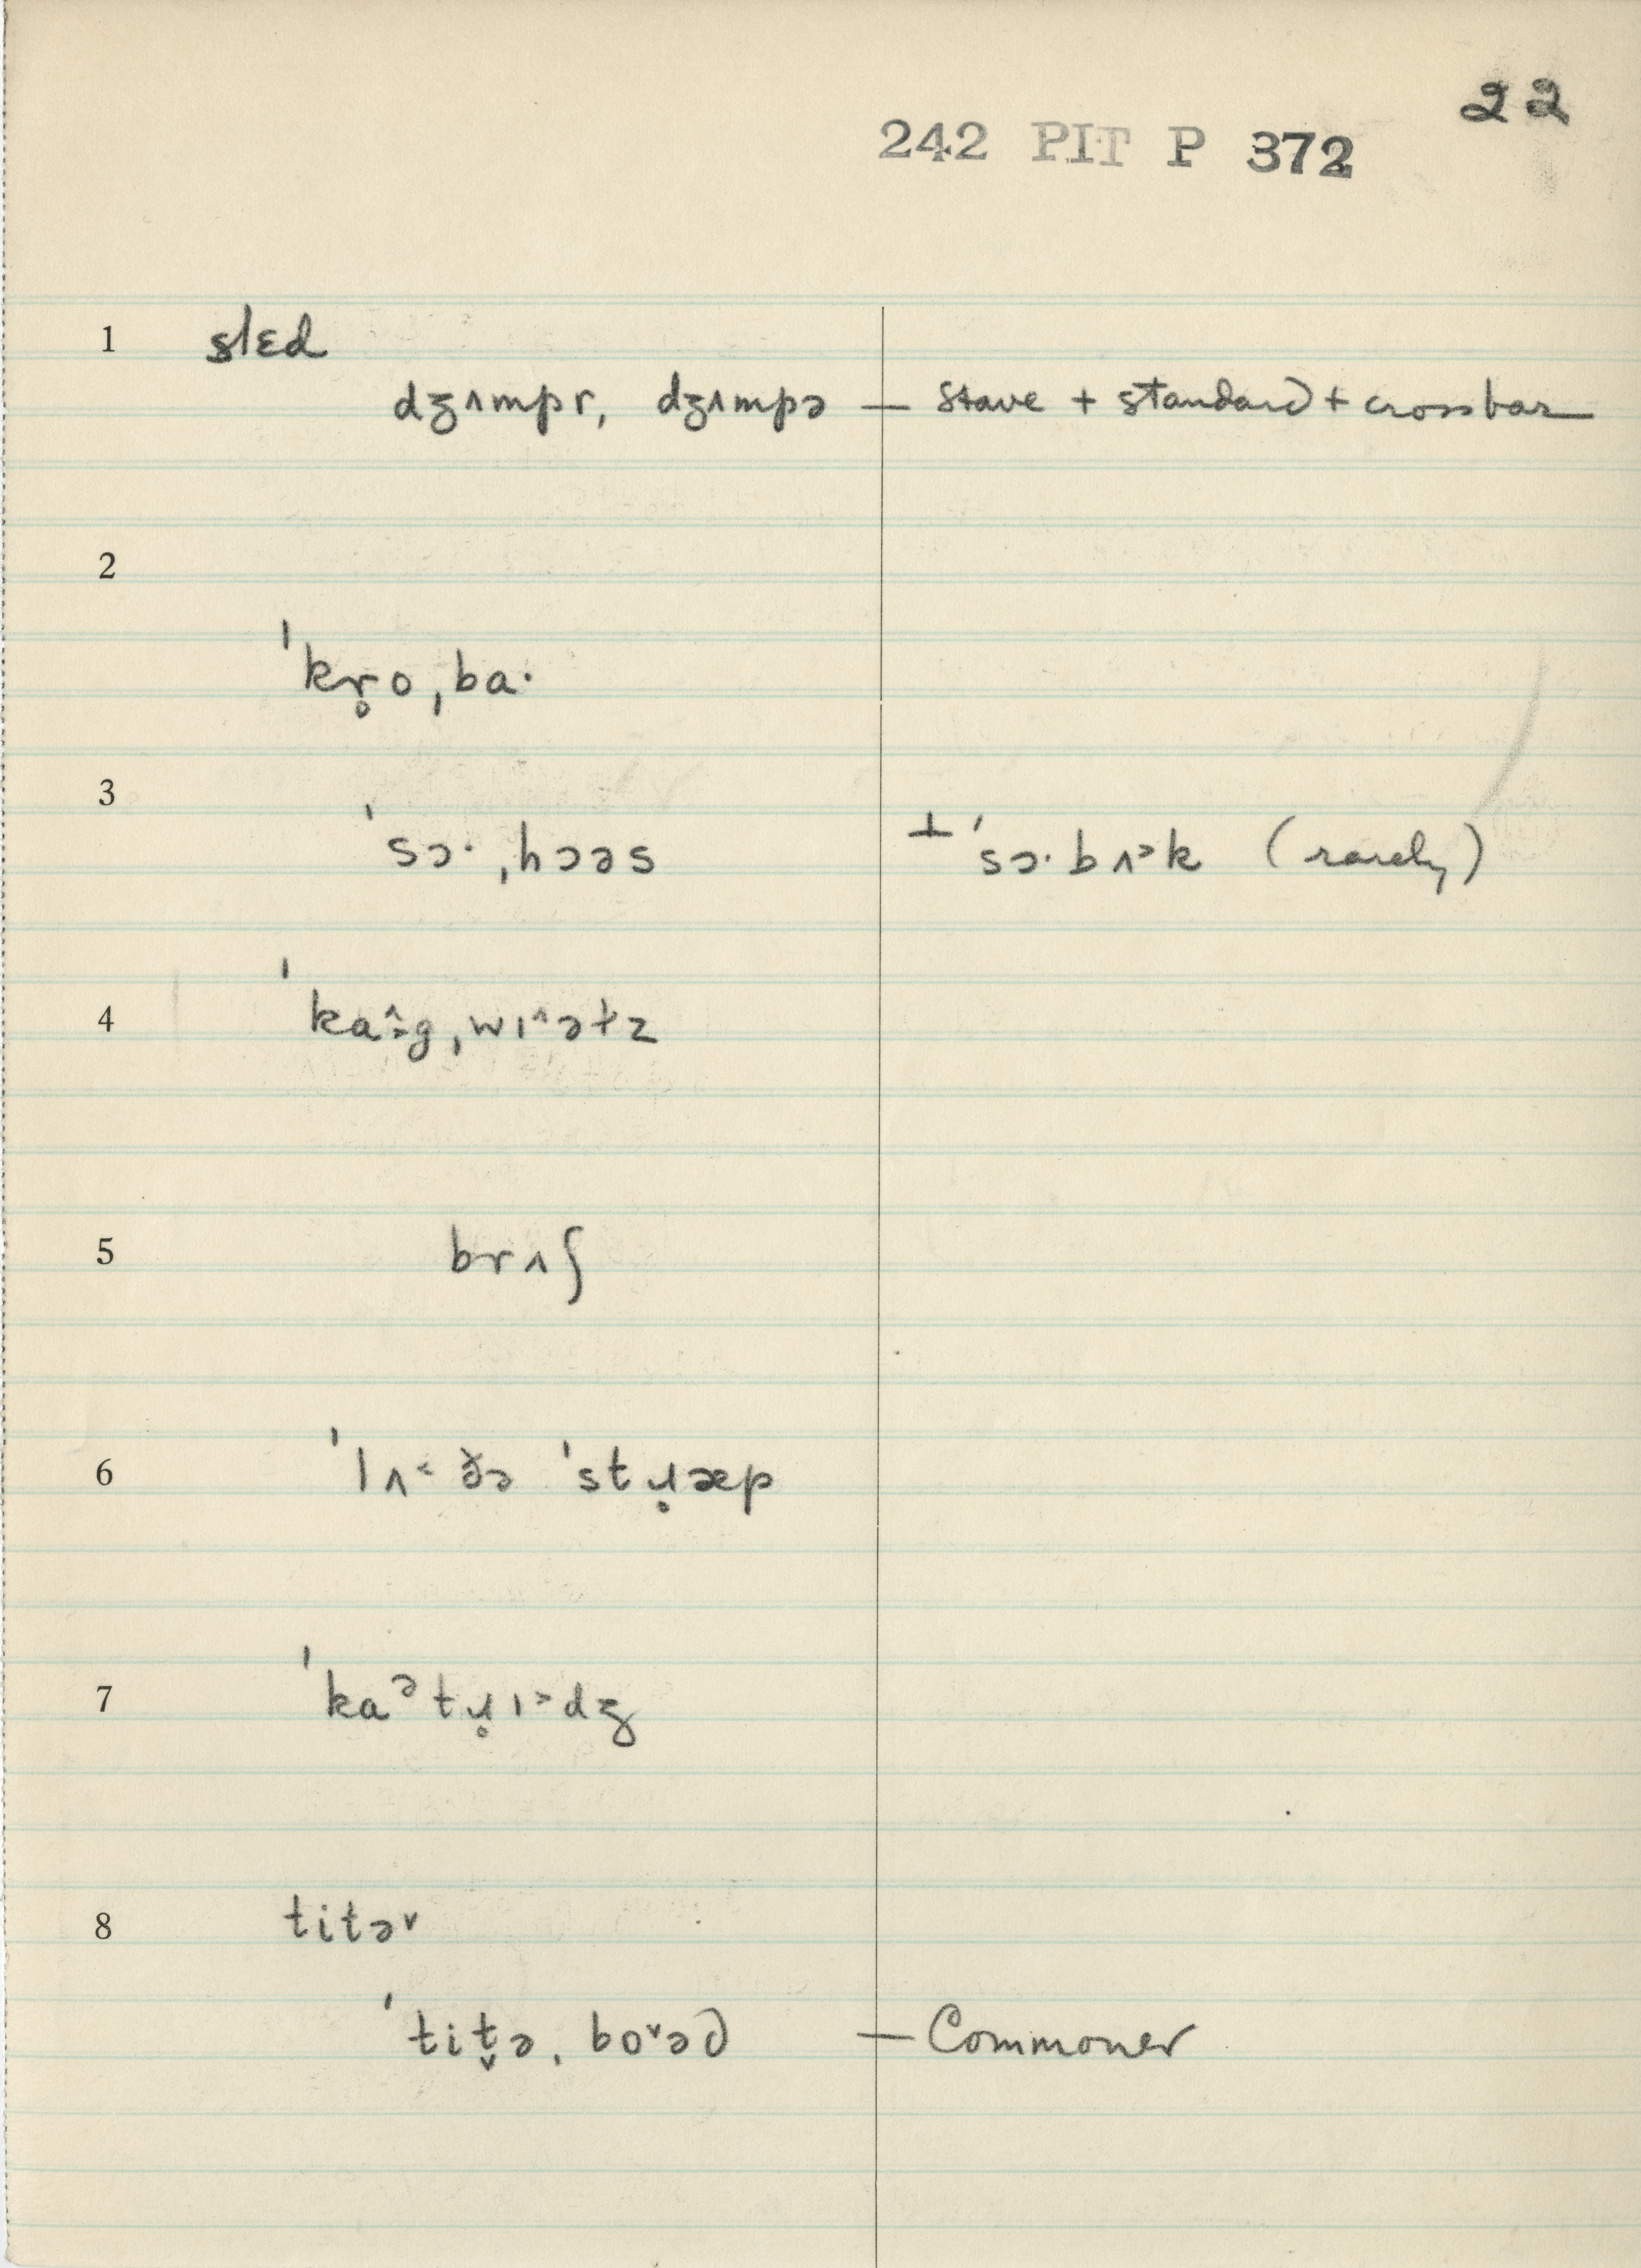 22
242 PIT P 372
1 slɛd
dʒʌmpr, dʒʌmpə — stave + standard + crossbar
2
ˈkr̥oˌba·
3
ˈsɔ·ˌhɔəs ⊥ ˈsɔ·bʌ˃k (rarely)
4 ˈka^·gˌwɪ^əɫz
5 brʌʃ
6 ˈlʌ˂ðə ˈstɹ̥æp
7 ˈkaᵊtɹ̥ɪ˃dʒ
8 titə˅
ˈtit̬əˌbo˅əd — Commoner